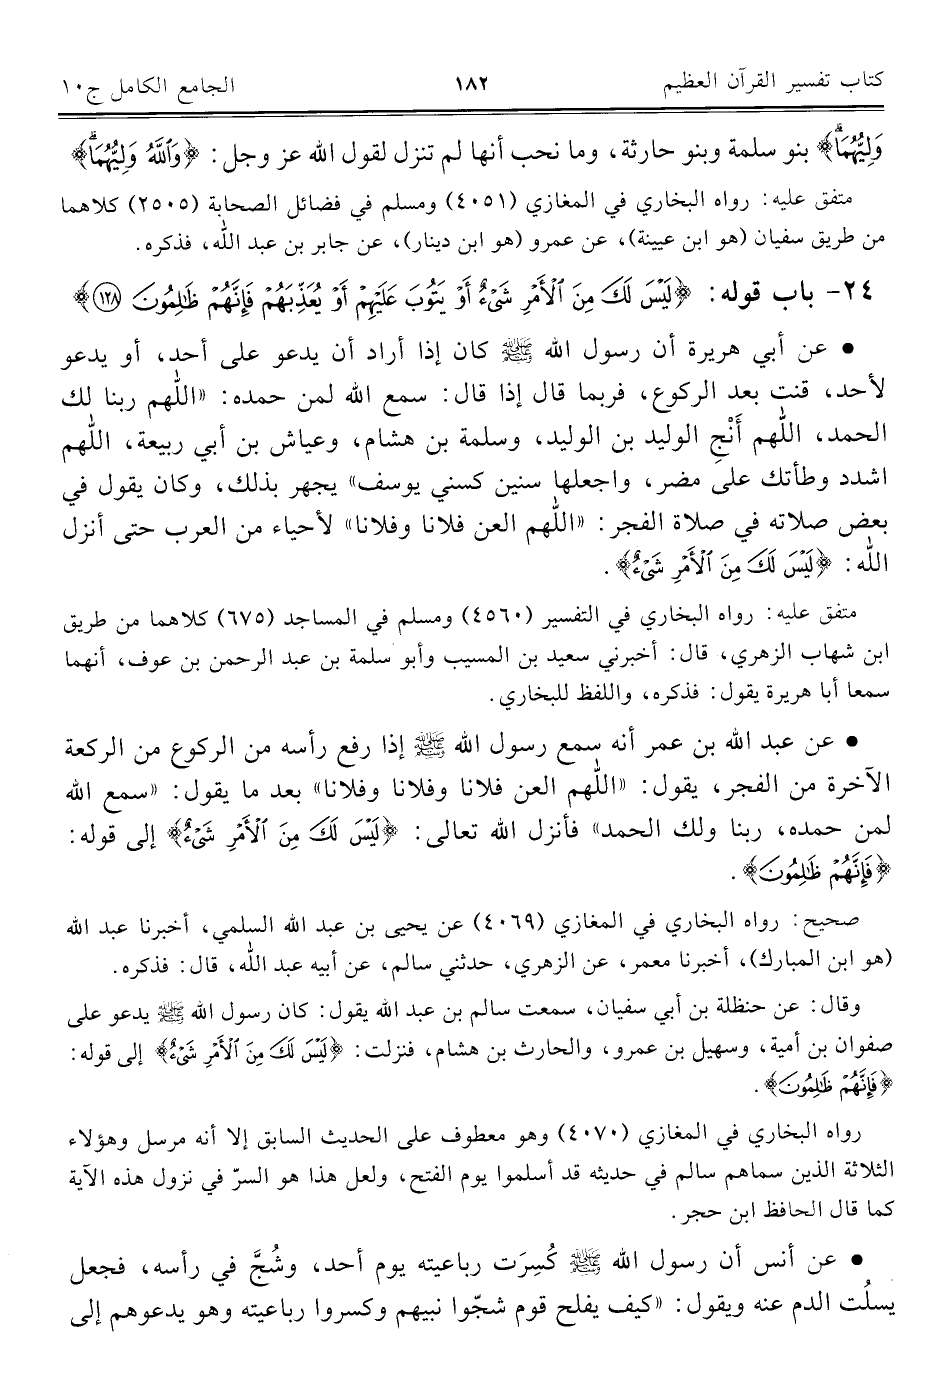 كتاب تفسير القرآن العظيم ١٨٢ الجامع الكامل ج١٠
وَلِيُّهُمَا﴾ بنو سلمة وبنو حارثة، وما نحب أنها لم تنزل لقول الله عز وجل: ﴿وَٱللَّهُ وَلِيُّهُمَا﴾
متفق عليه: رواه البخاري في المغازي (٤٠٥١) ومسلم في فضائل الصحابة (٢٥٠٥) كلاهما
من طريق سفيان (هو ابن عيينة)، عن عمرو (هو ابن دينار)، عن جابر بن عبد الله، فذكره.
٢٤- باب قوله: ﴿لَيْسَ لَكَ مِنَ ٱلْأَمْرِ شَىْءٌ أَوْ يَتُوبَ عَلَيْهِمْ أَوْ يُعَذِّبَهُمْ فَإِنَّهُمْ ظَٰلِمُونَ ١٢٨﴾
• عن أبي هريرة أن رسول الله ﷺ كان إذا أراد أن يدعو على أحد، أو يدعو
لأحد، قنت بعد الركوع، فربما قال إذا قال: سمع الله لمن حمده: «اللهم ربنا لك
الحمد، اللهم أَنْجِ الوليد بن الوليد، وسلمة بن هشام، وعياش بن أبي ربيعة، اللهم
اشدد وطأتك على مضر، واجعلها سنين كسني يوسف» يجهر بذلك، وكان يقول في
بعض صلاته في صلاة الفجر: «اللهم العن فلانا وفلانا» لأحياء من العرب حتى أنزل
الله: ﴿لَيْسَ لَكَ مِنَ ٱلْأَمْرِ شَىْءٌ﴾.
متفق عليه: رواه البخاري في التفسير (٤٥٦٠) ومسلم في المساجد (٦٧٥) كلاهما من طريق
ابن شهاب الزهري، قال: أخبرني سعيد بن المسيب وأبو سلمة بن عبد الرحمن بن عوف، أنهما
سمعا أبا هريرة يقول: فذكره، واللفظ للبخاري.
• عن عبد الله بن عمر أنه سمع رسول الله ﷺ إذا رفع رأسه من الركوع من الركعة
الآخرة من الفجر، يقول: «اللهم العن فلانا وفلانا وفلانا» بعد ما يقول: «سمع الله
لمن حمده، ربنا ولك الحمد» فأنزل الله تعالى: ﴿لَيْسَ لَكَ مِنَ ٱلْأَمْرِ شَىْءٌ﴾ إلى قوله:
﴿فَإِنَّهُمْ ظَٰلِمُونَ﴾.
صحيح: رواه البخاري في المغازي (٤٠٦٩) عن يحيى بن عبد الله السلمي، أخبرنا عبد الله
(هو ابن المبارك)، أخبرنا معمر، عن الزهري، حدثني سالم، عن أبيه عبد الله، قال: فذكره.
وقال: عن حنظلة بن أبي سفيان، سمعت سالم بن عبد الله يقول: كان رسول الله ﷺ يدعو على
صفوان بن أمية، وسهيل بن عمرو، والحارث بن هشام، فنزلت: ﴿لَيْسَ لَكَ مِنَ ٱلْأَمْرِ شَىْءٌ﴾ إلى قوله:
﴿فَإِنَّهُمْ ظَٰلِمُونَ﴾.
رواه البخاري في المغازي (٤٠٧٠) وهو معطوف على الحديث السابق إلا أنه مرسل وهؤلاء
الثلاثة الذين سماهم سالم في حديثه قد أسلموا يوم الفتح، ولعل هذا هو السرّ في نزول هذه الآية
كما قال الحافظ ابن حجر.
• عن أنس أن رسول الله ﷺ كُسِرَت رباعيته يوم أحد، وشُجَّ في رأسه، فجعل
يسلُت الدم عنه ويقول: «كيف يفلح قوم شجّوا نبيهم وكسروا رباعيته وهو يدعوهم إلى